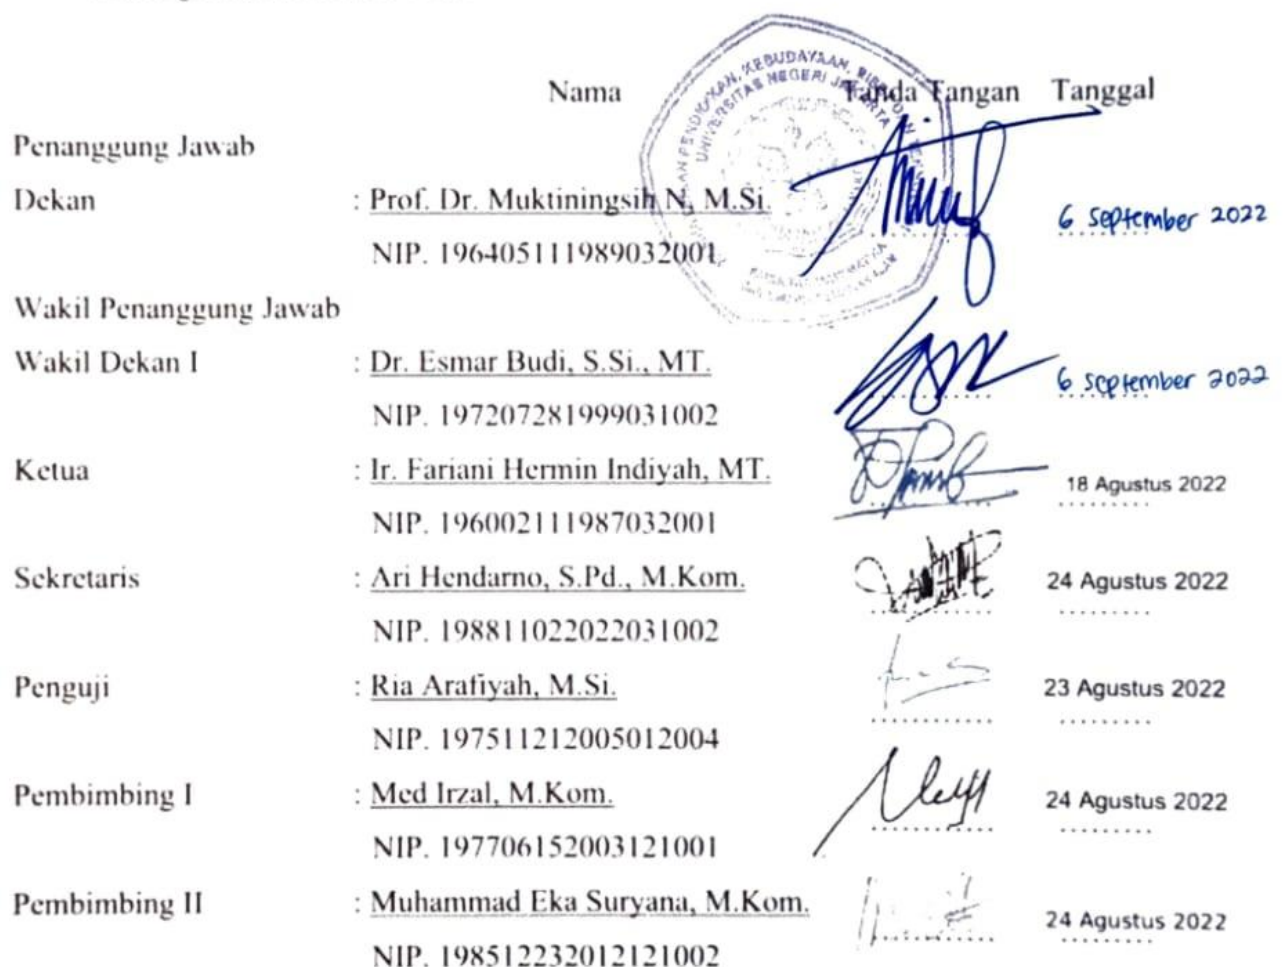 Nama Tanda Tangan Tanggal
Penanggung Jawab
Dekan : Prof. Dr. Muktiningsih N, M.Si.
6 September 2022
NIP. 196405111989032001
Wakil Penanggung Jawab
Wakil Dekan I : Dr. Esmar Budi, S.Si., MT.
6 September 2022
NIP. 197207281999031002
Ketua : Ir. Fariani Hermin Indiyah, MT.
18 Agustus 2022
NIP. 196002111987032001
Sekretaris : Ari Hendarno, S.Pd., M.Kom.
24 Agustus 2022
NIP. 198811022022031002
Penguji : Ria Arafiyah, M.Si.
23 Agustus 2022
NIP. 197511212005012004
Pembimbing I : Med Irzal, M.Kom.
24 Agustus 2022
NIP. 197706152003121001
Pembimbing II : Muhammad Eka Suryana, M.Kom.
24 Agustus 2022
NIP. 198512232012121002
KEBUDAYAAN,
UNIVERSITAS NEGERI JAKARTA